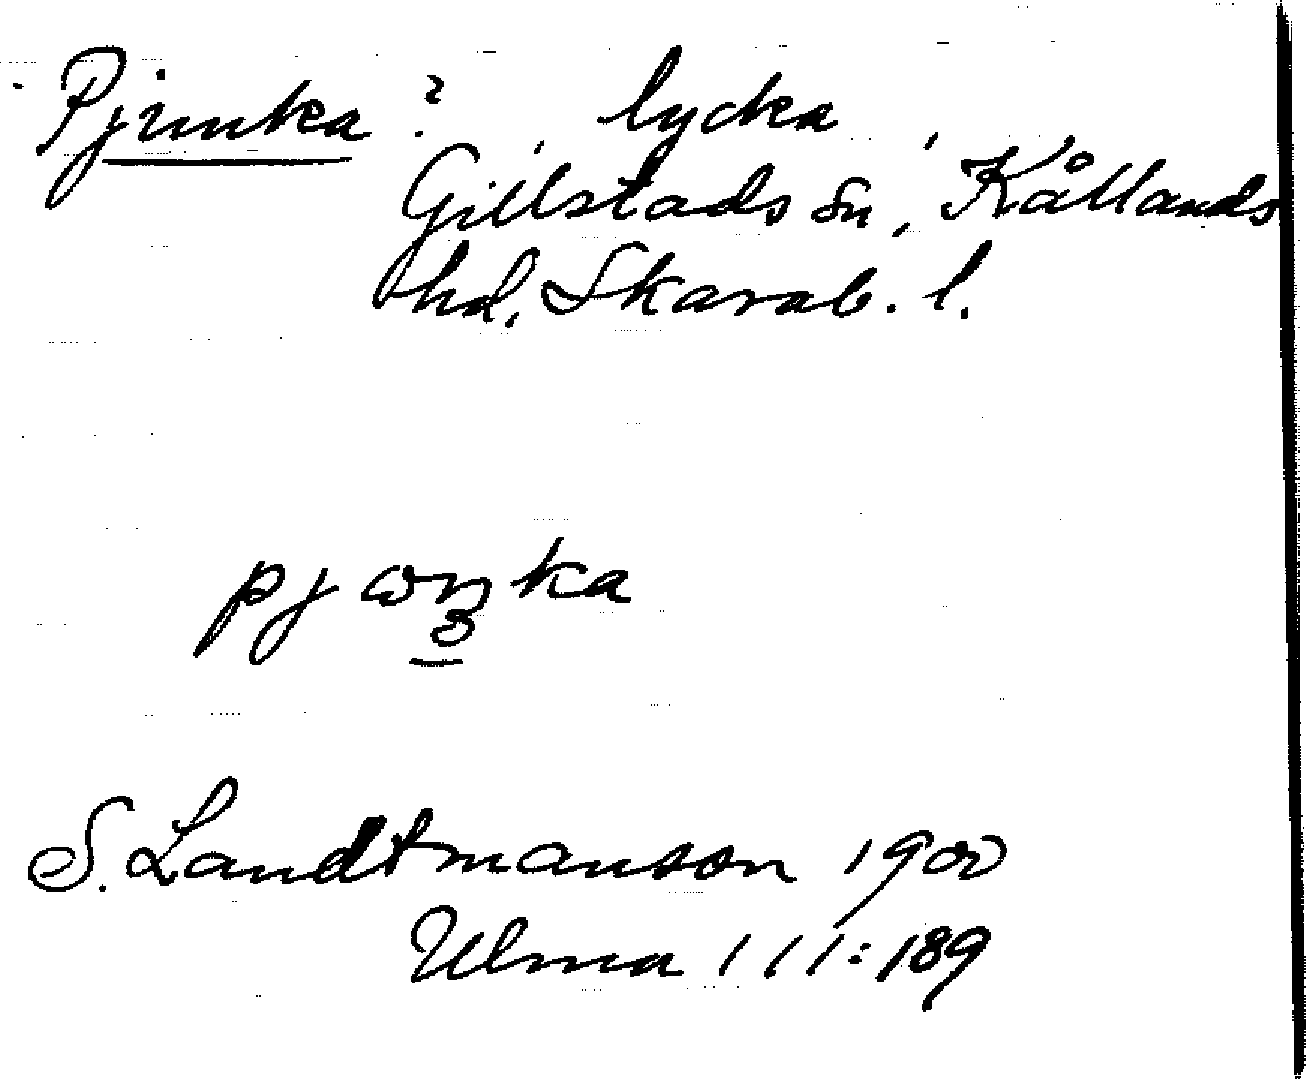 Pjunka ? , lycka ,
Gillstads sn, Kållands
hd, Skarab. l.
pjωŋka
S. Landtmanson 1900
Ulma 111:189